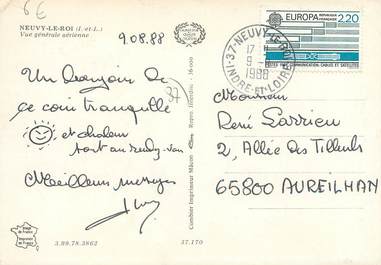 6€
NEUVY-LE-ROI (I.-et-L.)
Vue générale aérienne
9.08.88
Un bonjour de
ce coin tranquille
et chaleur
sont au rendez-vous
Meilleurs messages
37
Reprod. Interdite - 16-009
Combier Imprimeur Mâcon
Image de France
Imprimée en France
3.99.78.3862
37.170
37-NEUVY-LE-ROI
17 H
9 -
1988
INDRE-ET-LOIRE
EUROPA
RÉPUBLIQUE FRANÇAISE
2,20
COMMUNICATION: CABLES ET SATELLITES
Monsieur
René Larrieu
2, Allée des Tilleuls
65800 AUREILHAN